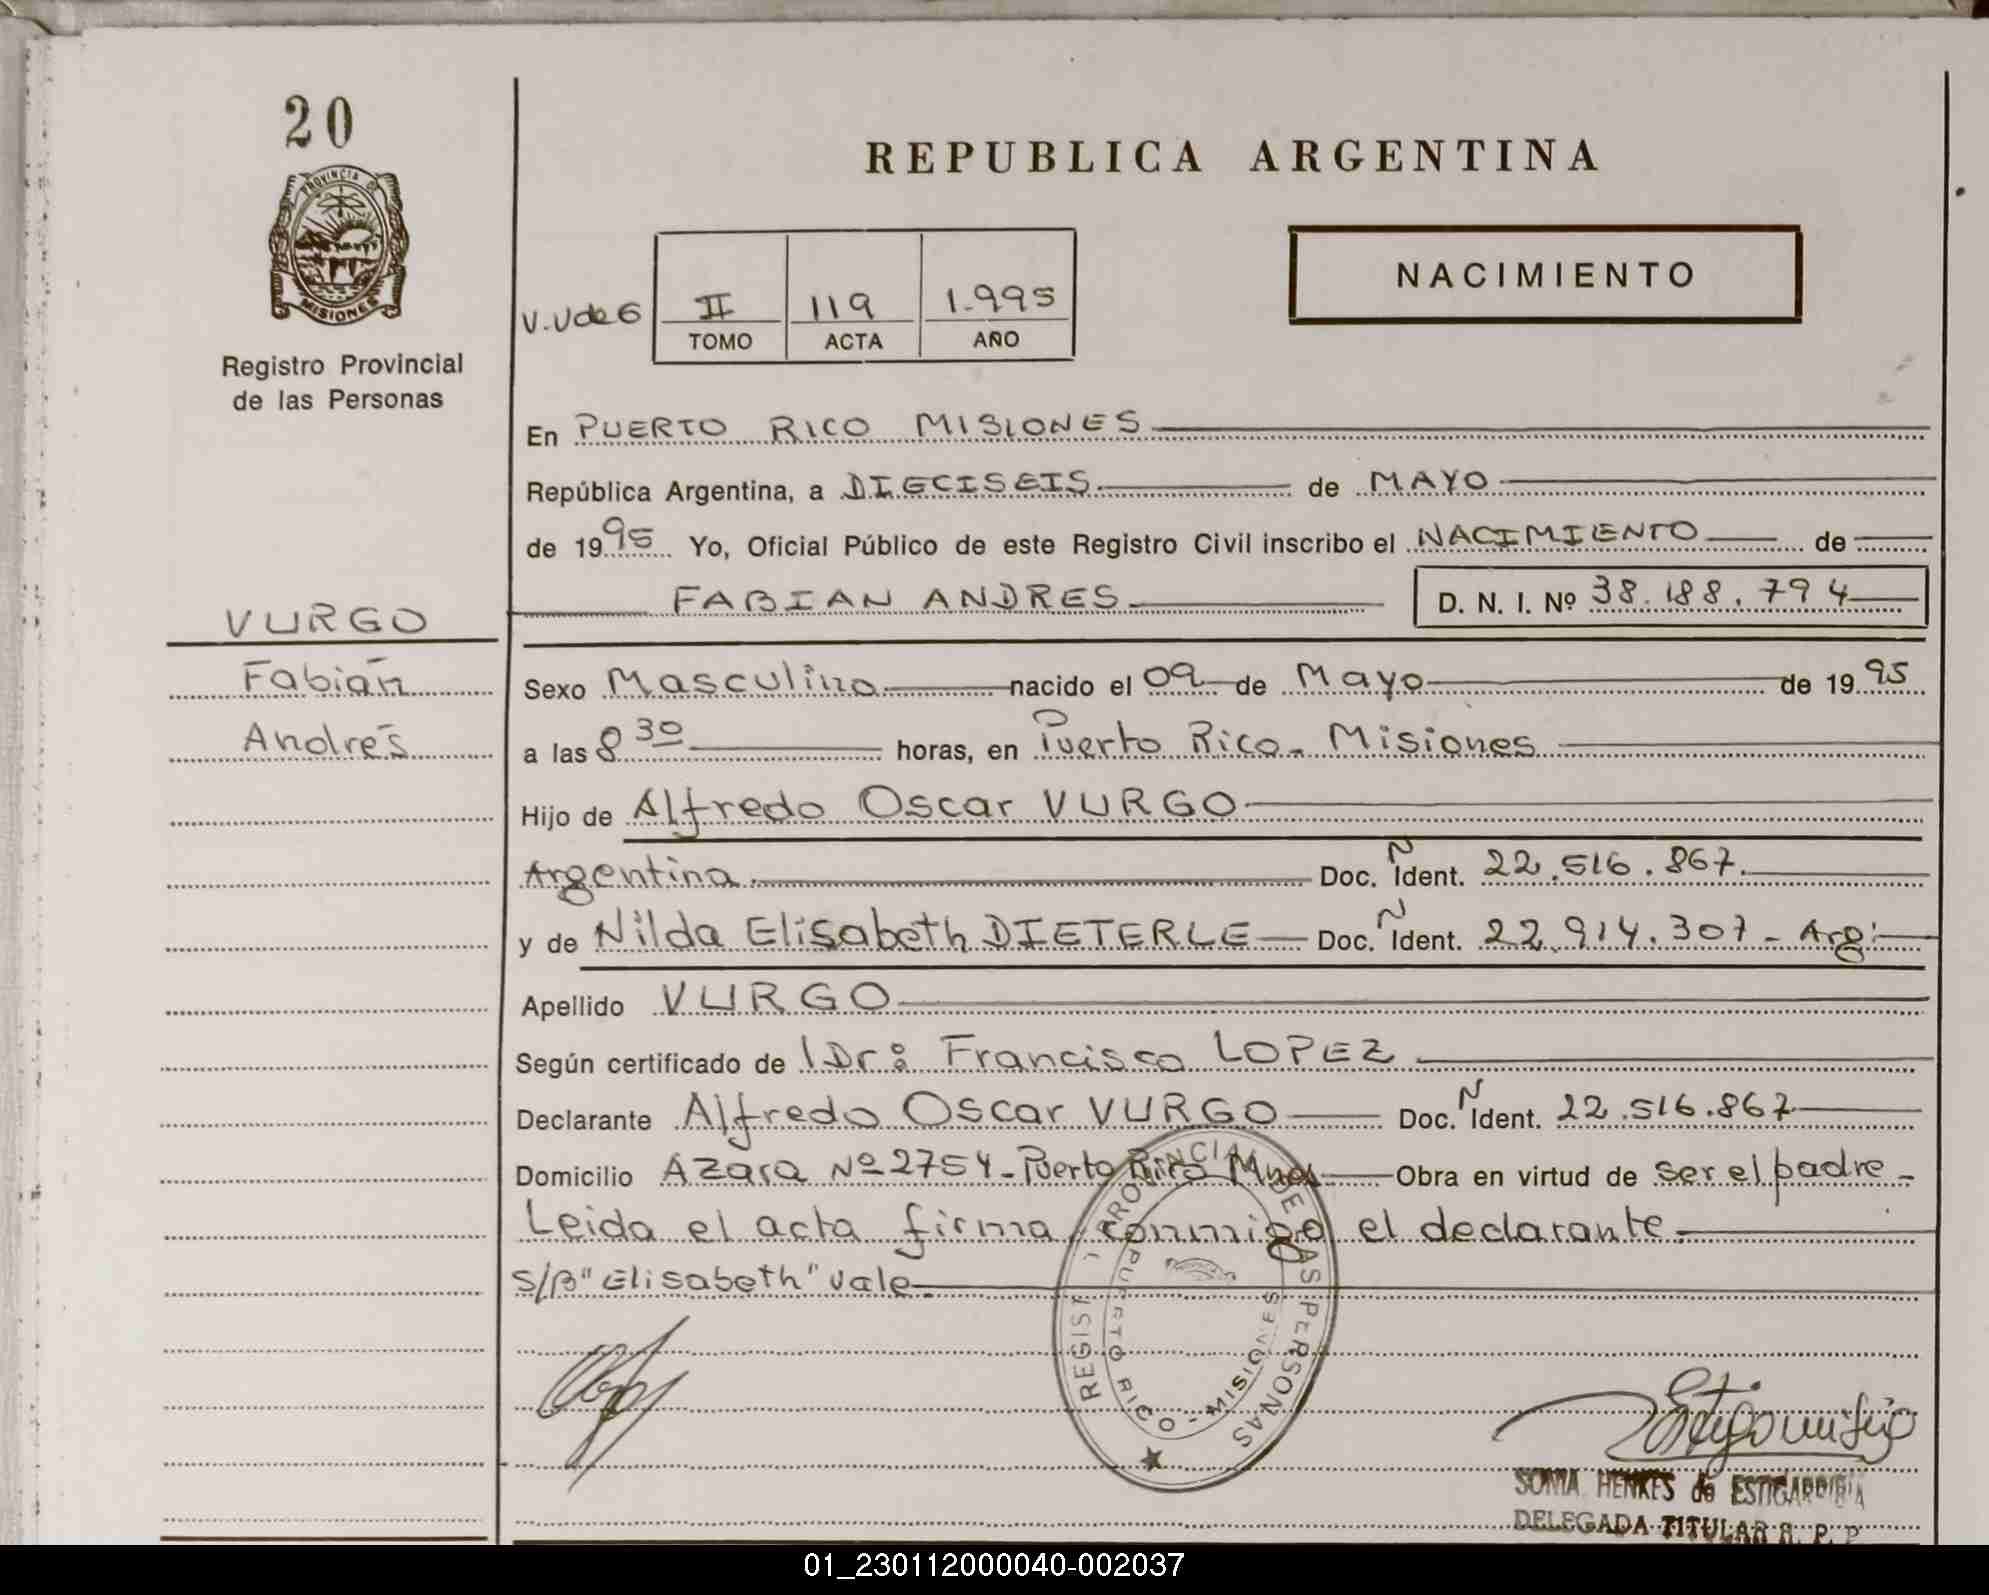 20
PROVINCIA DE
MISIONES
Registro Provincial
de las Personas
REPUBLICA ARGENTINA
NACIMIENTO
II 119 1.995
TOMO ACTA AÑO
En PUERTO RICO MISIONES
República Argentina, a DIECISEIS de MAYO
de 1995 Yo, Oficial Público de este Registro Civil inscribo el NACIMIENTO de
FABIAN ANDRES D. N. I. Nº 38.188.794
VURGO
Fabián
Andrés
Sexo Masculino nacido el 09 de Mayo de 1995
a las 8 30 horas, en Puerto Rico - Misiones
Hijo de Alfredo Oscar VURGO
Argentina Doc. N Ident. 22.516.867.
y de Nilda Elisabeth DIETERLE Doc. N Ident. 22.914.307 - Arg.
Apellido VURGO
Según certificado de Dr: Francisco LOPEZ
Declarante Alfredo Oscar VURGO Doc. N Ident. 22.516.867
Domicilio Azara Nº 2754 - Puerto Rico Mnes Obra en virtud de ser el padre -
Leida el acta firma conmigo el declarante
S/B "Elisabeth" vale
PROVINCIA DE LAS PERSONAS
PUERTO RICO - MISIONES
SONIA HENKES de ESTIGARRIBIA
DELEGADA TITULAR R. P. P.
01_230112000040-002037